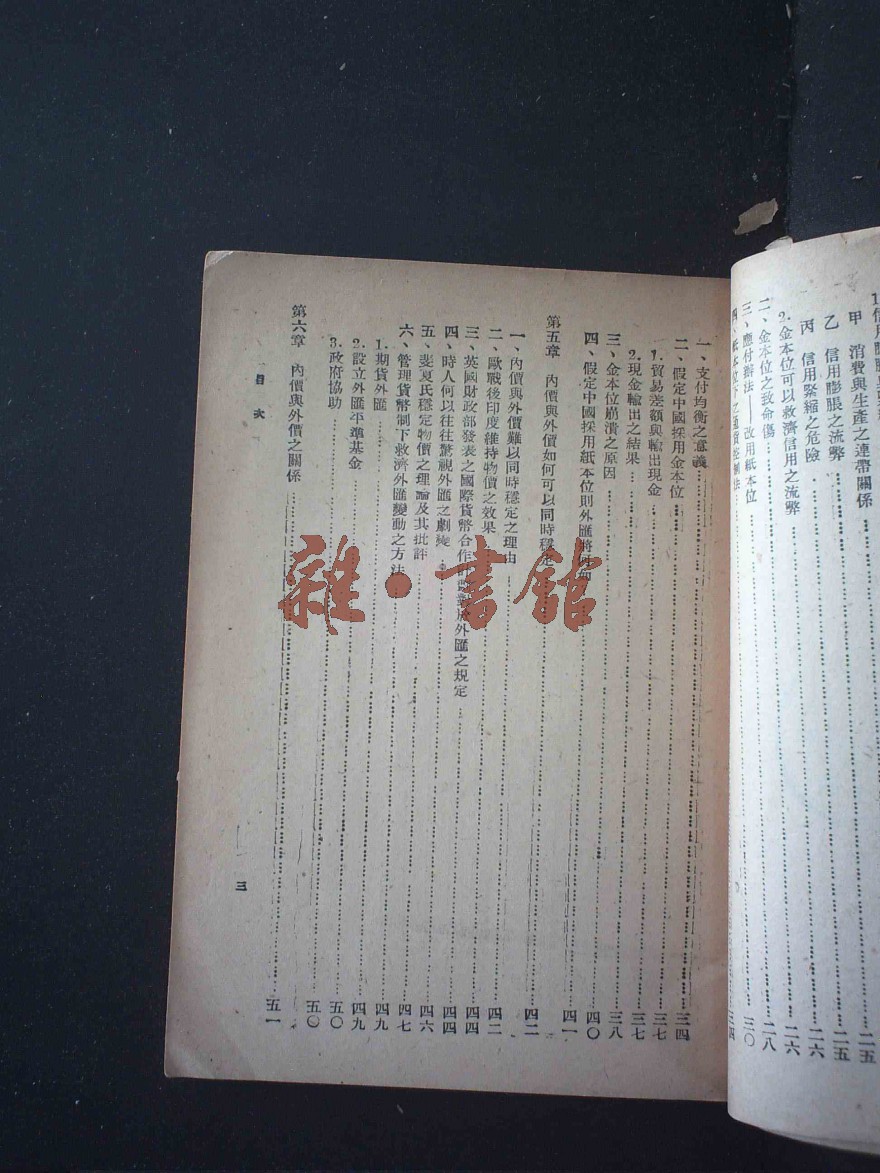 甲 消費與生產之連帶關係 二五
乙 信用膨脹之流弊 二五
丙 信用緊縮之危險 二六
2.金本位可以救濟信用之流弊 二六
二、金本位之致命傷 二八
三、應付辦法——改用紙本位 三〇
一、支付均衡之意義 三四
二、假定中國採用金本位 三四
1.貿易差額與輸出現金 三七
2.現金輸出之結果 三七
三、金本位崩潰之原因 三八
四、假定中國採用紙本位則外匯將 四〇
第五章 內價與外價如何可以同時穩定 四一
一、內價與外價難以同時穩定之理由 四二
二、歐戰後印度維持物價之效果 四二
三、英國財政部發表之國際貨幣合作 外匯之規定 四四
四、時人何以往往驚視外匯之劇變 四四
五、斐夏氏穩定物價之理論及其批評 四六
六、管理貨幣制下救濟外匯變動之方法 四七
1.期貨外匯 四九
2.設立外匯平準基金 四九
3.政府協助 五〇
第六章 內價與外價之關係 五一
目次
三
雜·書館